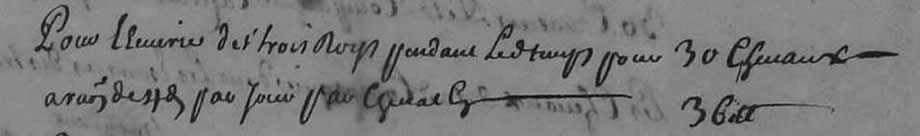 Pour l'Ecurie des trois Roys pendant led temps pour 30 Chevaux
a rai͠s de 4d par jour par cheval Cy 36tt